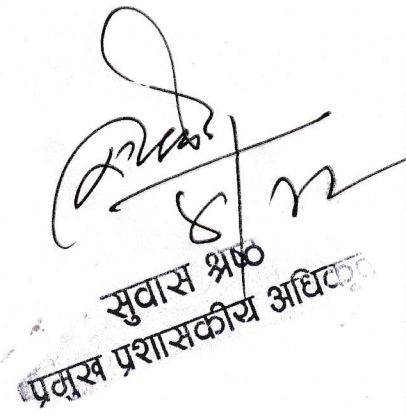 ४/२२
सुवास श्रेष्ठ
प्रमुख प्रशासकीय अधिकृत